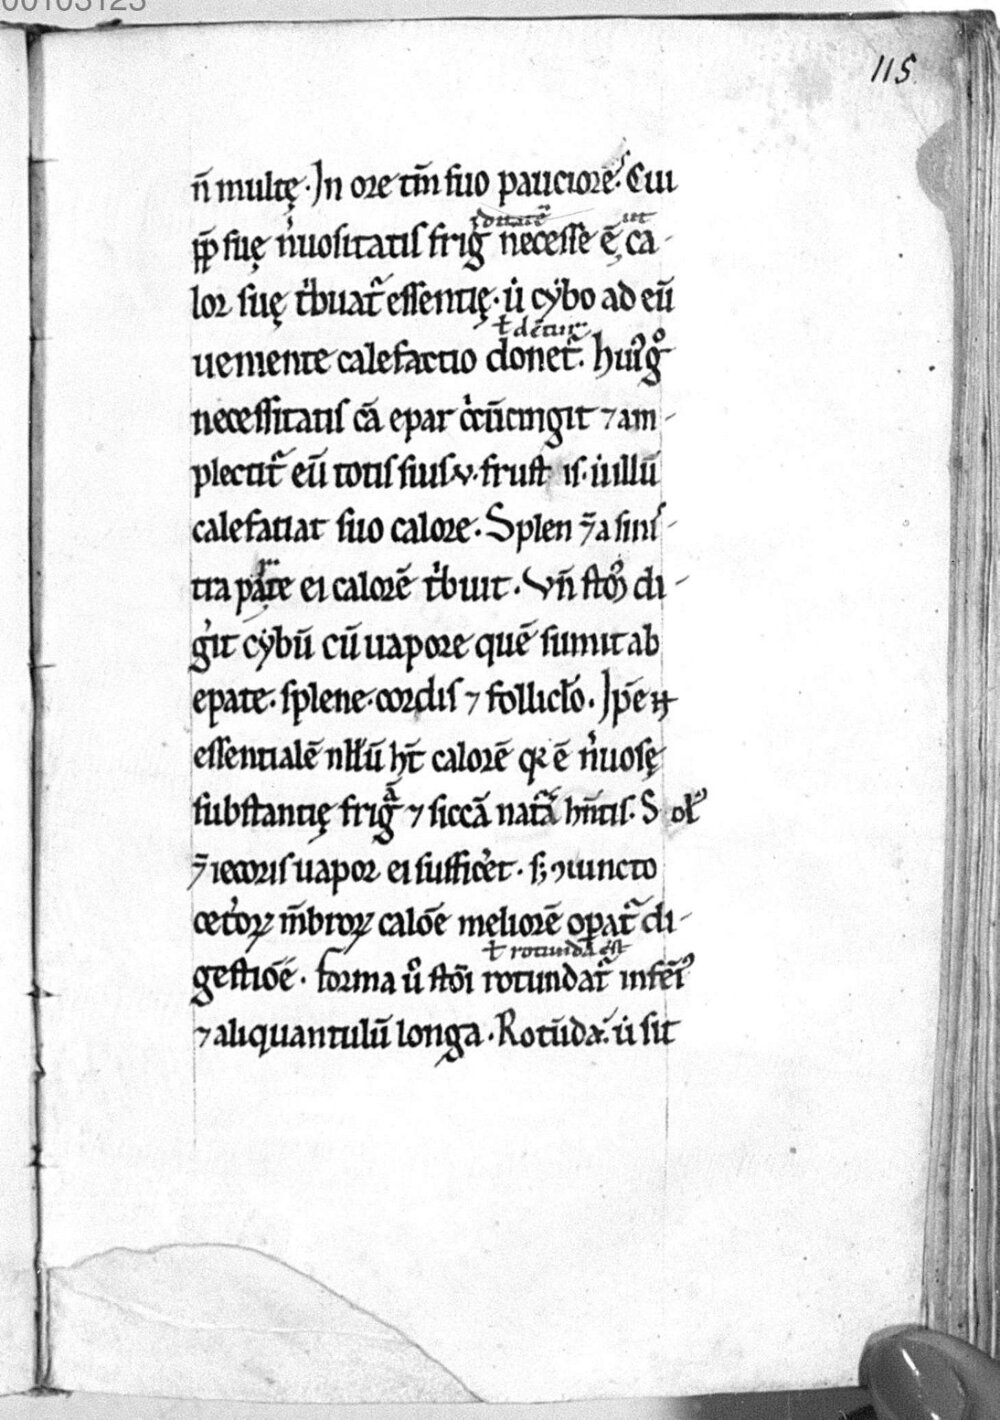 00103123
115
n̄ multę. In ore tm̄ suo pauciorēs. Cui
ꝓp̄ suę nͥuositatis frig necesse ē, ca-
ditatē ut
lor suę tͥbuat᷑ essentię. uͥ cẏbo ad eū
ueniente calefactio donet᷑. huiꝰ gͦ
ł dētur
necessitatis cā epar cͥcūcingit ⁊ am-
plectit᷑ eū totis suis .v. frustis. uͥ illū
calefatiat suo calore. Splen ⁊̄ a sinis-
tra parte ei calorē tͥbuit. Vn̄ stōꝰ di-
gͥit cẏbū cū uapore quē sumit ab
epate. splene. cordis ⁊ follicl̄o. Ip̄e n̄
essentialē nll̄ū ht̄ calorē qꝛ ē nͥuosę
substantię frigͣ ⁊ siccā natā hn̄tis. S ol᷑
⁊̄ iecoris uapor ei sufficͥet. s; ꝯiuncto
cetͥoꝝ m̄broꝝ calōe meliorē opat᷑ di-
gestiōē. Forma uͦ stōi rotundat᷑ infēiꝰ
ł rotunda est
⁊ aliquantulū longa. Rotūda. uͥ sit